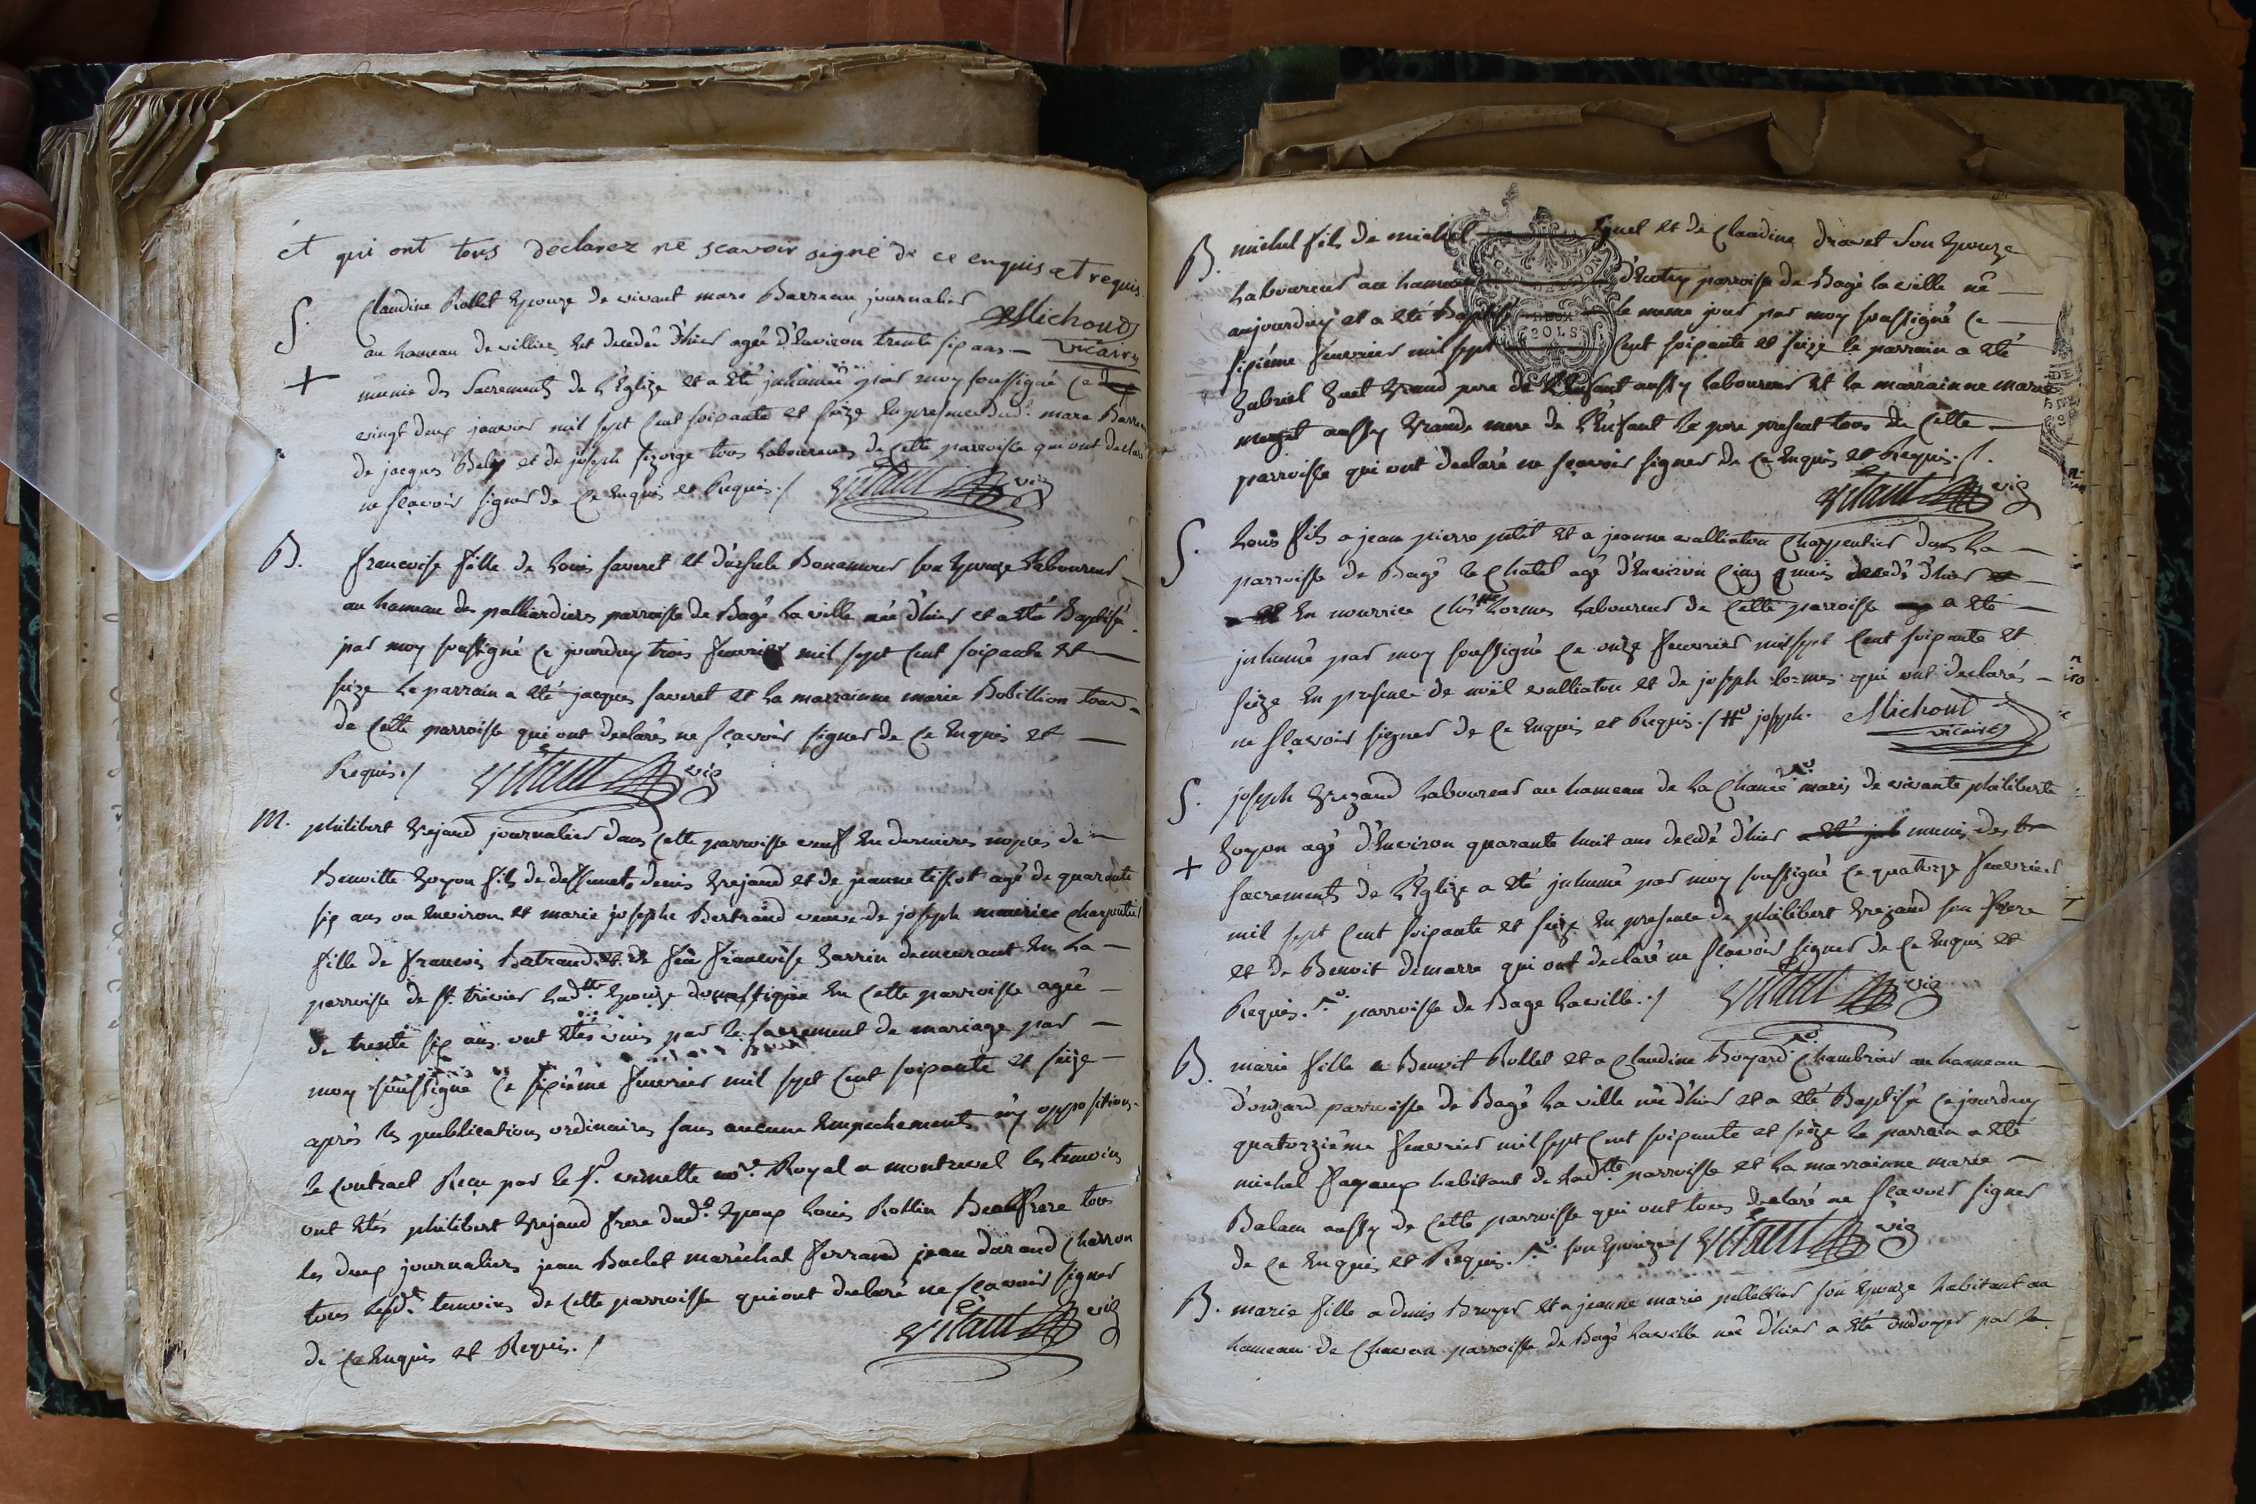 et qui ont tous declarez ne scavoir signé de ce enquis et requis
Michoud
vicaire
S. Claudine Rollet Epouze de vivant marc Barreau journalier
au hameau de villiers est decedée d'hier agée d'Environ trente six ans
+ munie des Sacrements de L'Eglize et a été inhumée par moy soussigné ce
vingt deux janvier mil sept cent soixante et seize En presence dud.t marc Barreau
de jacques Bely et de joseph tous Laboureurs de Cette parroisse qui ont declaré
ne sçavoir signer de Ce Enquis et Requis./ vitaut vic
B. francoise fille de Louis favret et d'ursule Bonamour son Epouze Laboureur
au hameau des palliardiers parroisse de Bagé La ville née d'hier et a été Baptisé
par moy soussigné Ce jourduy trois fevrier mil sept Cent soixante et
seize Le parrain a été jacques favret et La marrainne marie Robillion tous
de Cette parroisse qui ont declarés ne sçavoir signer de Ce Enquis et
Requis./ vitaut vic
M. philibert Grejaud journalier dans Cette parroisse veuf En dernieres nopces de
Benoitte Goyon fils de deffuncts denis Grejaud et de jeanne tissot agé de quarente
six ans ou Environ et marie josephe Bertrand veuve de joseph maurice charpentier
fille de francois Bertrand et de feüe francoise demeurant En La
parroisse de St. trivier Lad.tte Epouze domestique En Cette parroisse agée
de trente six ans ont étés unis par Le Sacrement de mariage par
moy soussigné Ce sixiéme fevrier mil sept Cent soixante et seize
après les publications ordinaires sans aucune Empechements n'y oppositions
Le Contract Reçu par Le Sr. vernette no.re Royal a montrevel Les temoins
ont étés philibert Grejaud frere dud.t Epoux Louis Rollin Beaufrere tous
les deux journaliers jean Buclet maréchal ferrand jean durand Charron
tous Lesd.t temoins de Cette parroisse qui ont declaré ne sçavoir signer
de Ce Enquis et Requis./ vitaut vic
B. michel fils de michel Guet et de Claudine dravet Son Epouze
Laboureur au hameau parroisse de Bagé La ville né
aujourduy et a été Baptisé le meme jour par moy soussigné Ce
sixiéme fevrier mil sept Cent soixante et seize le parrain a été
Gabriel Guet Grand pere de L'Enfant aussy Laboureur et La marrainne marie
aussy Grande mere de L'Enfant Le pere present tous de Cette
parroisse qui ont declaré ne sçavoir signer de Ce Enquis et Requis./.
vitaut vic
GENERALITE
DEUX
SOLS
S. Louis fils a jean pierre petit et a jeanne Charpentier dans La
parroisse de Bagé Le Chatel agé d'Environ Cinq mois decedé d'hier
En nourrice Chés Lormes Laboureur de Cette parroisse a été
inhumé par moy soussigné Ce onze fevrier mil sept Cent soixante et
seize En presence de noël et de joseph Lormes qui ont declarés
ne sçavoir signer de Ce Enquis et Requis./ joseph. Michoud
vicaire
S. joseph Grezaud Laboureur au hameau de La mary de vivante philiberte
Goyon agé d'Environ quarante huit ans decedé d'hier munis des
+ sacrements de L'Eglize a été inhumé par moy soussigné Ce quatorze fevrier
mil sept Cent soixante et seize En presence de philibert Grezaud son frere
et de Benoit demarre qui ont declaré ne sçavoir signer de Ce Enquis et
Requis. parroisse de Bage La ville./ vitaut vic
B. marie fille a Benoit Rollet et a Claudine Boyard Chambrier au hameau
parroisse de Bagé La ville née d'hier et a été Baptisée Ce jourduy
quatorziéme fevrier mil sept Cent soixante et seize Le parrain a été
michel habitant de Lad.tte parroisse et La marrainne marie
Balam aussy de Cette parroisse qui ont tous declaré ne sçavoir signer
de Ce Enquis et Requis. son Epouze./ vitaut vic
B. marie fille a denis Broyer et a jeanne marie pelletier son Epouze habitant au
hameau de parroisse de Bagé La ville née d'hier a été ondoyer par La